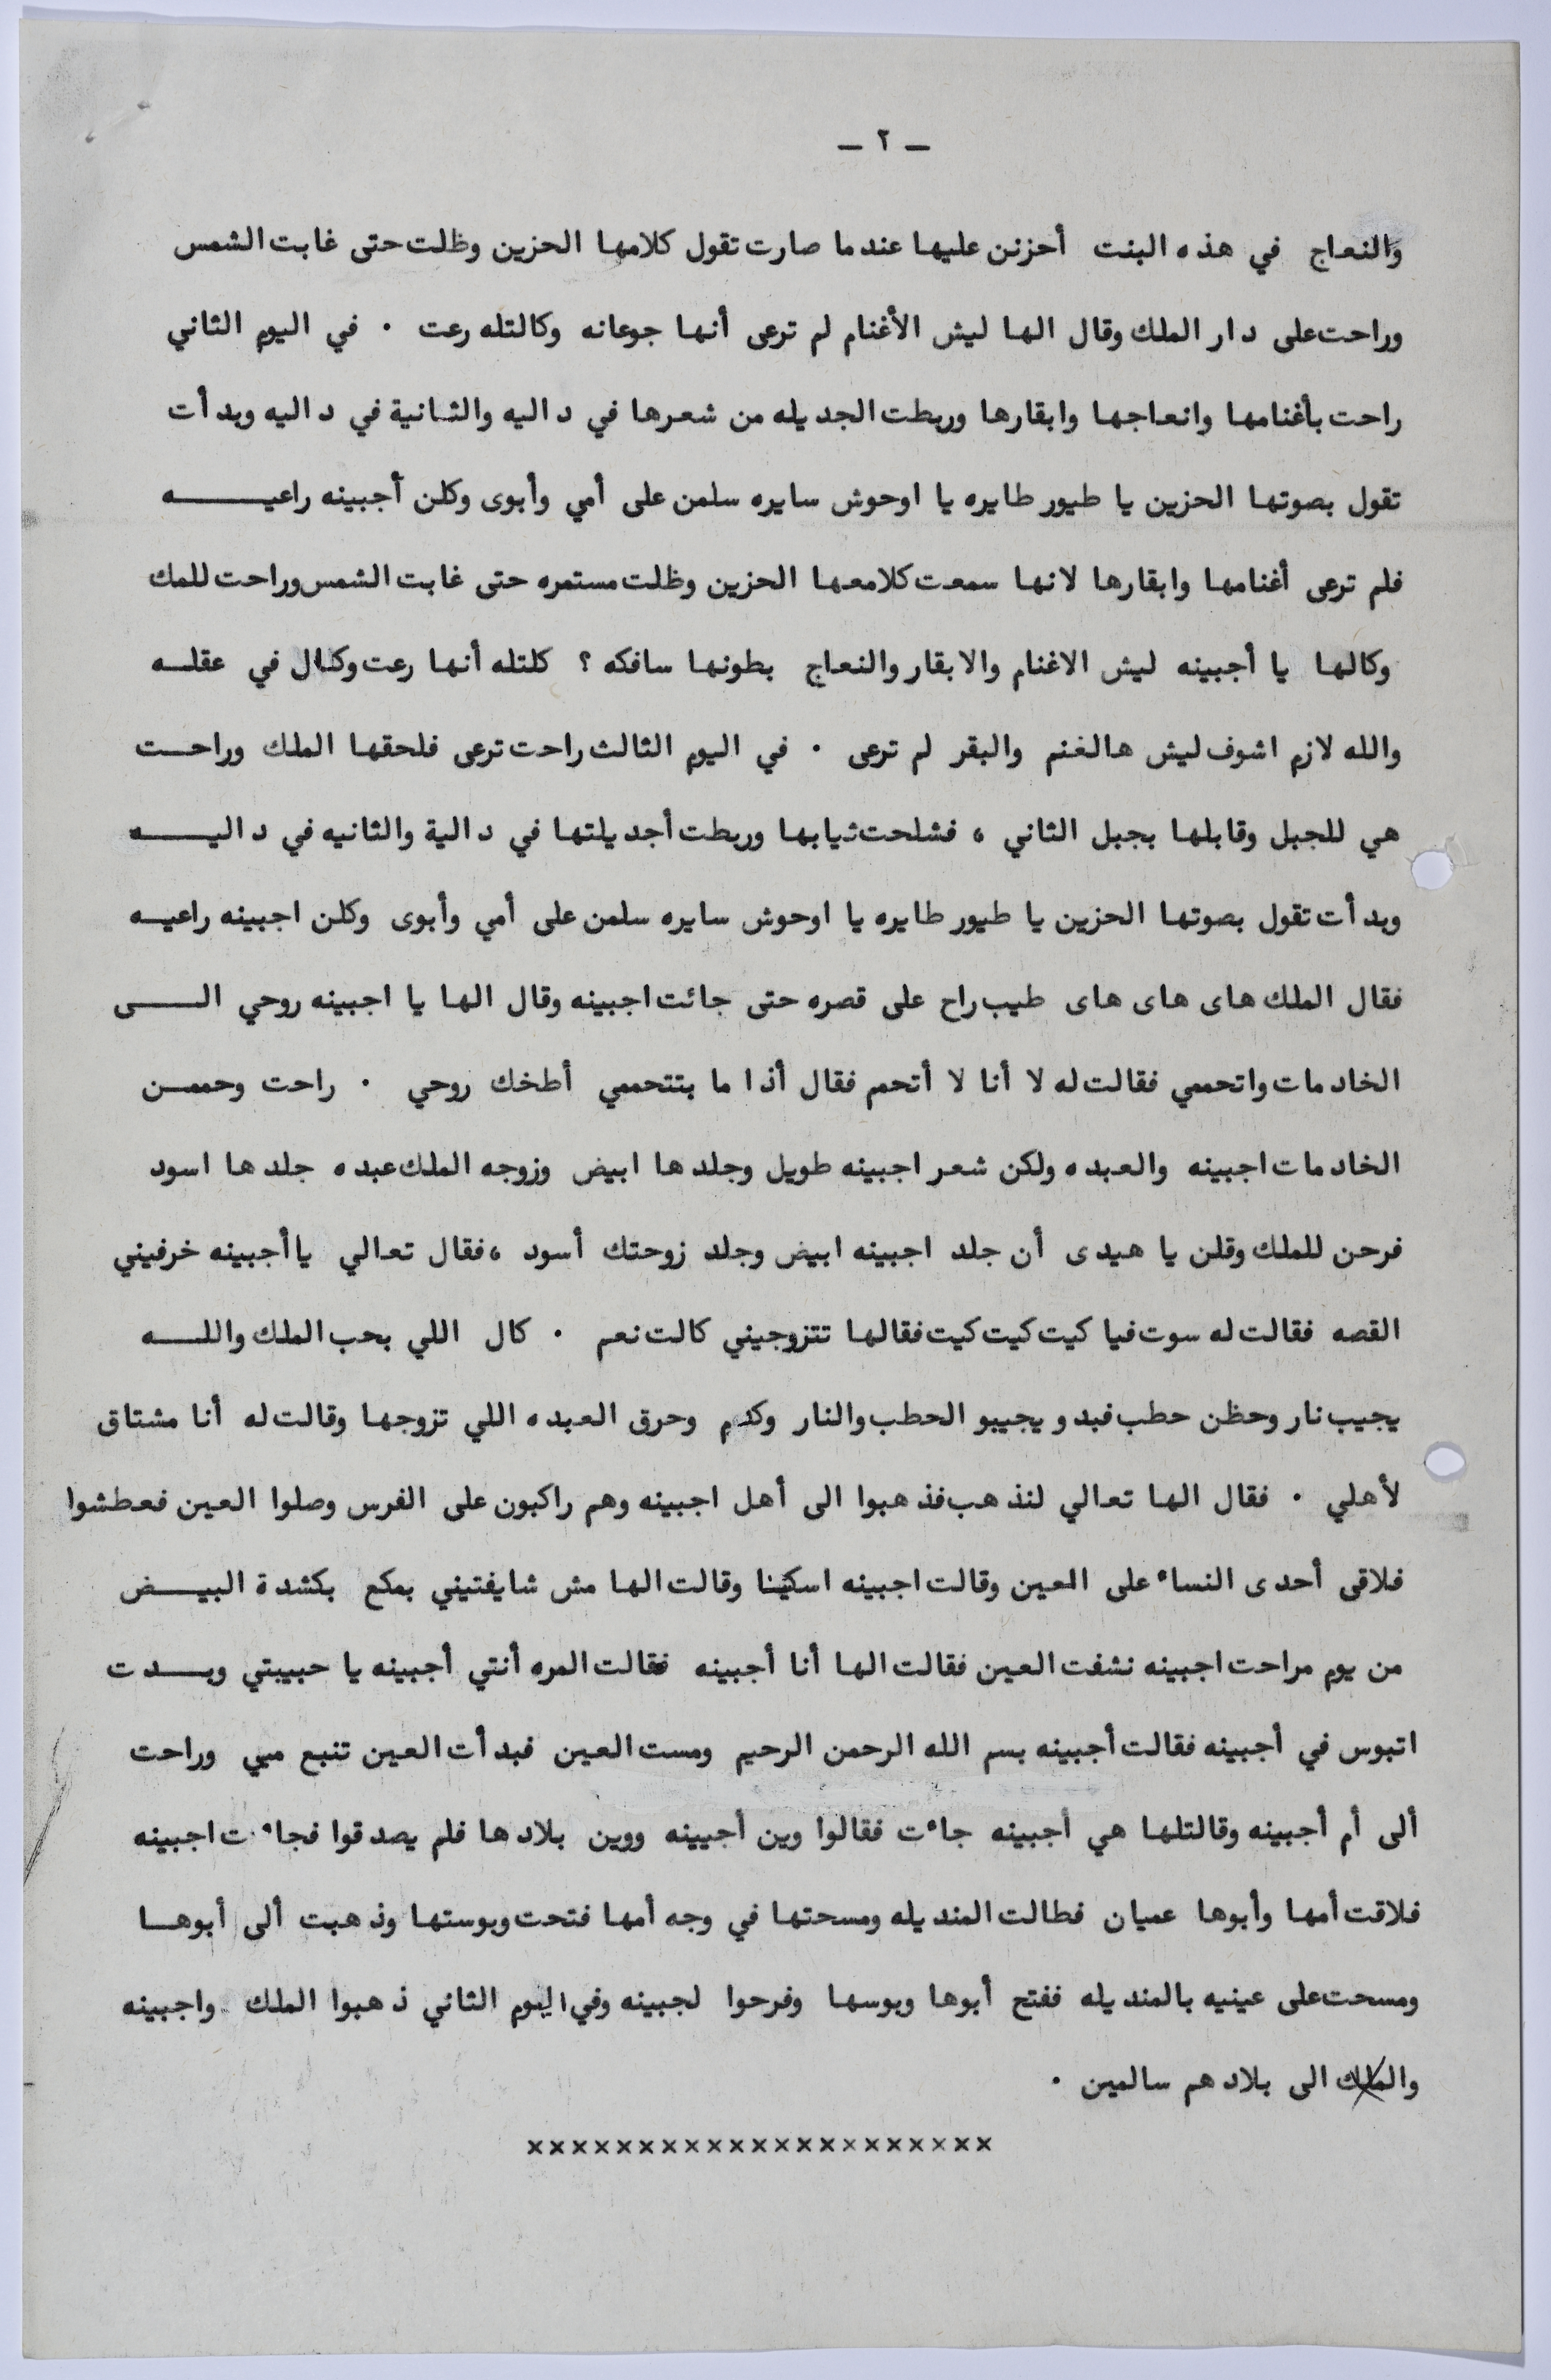 – ٢ –
والنعاج في هذه البنت أحزنن عليها عندما صارت تقول كلامها الحزين وظلت حتى غابت الشمس
وراحت على دار الملك وقال الها ليش الأغنام لم ترعى أنها جوعانه وكالتله رعت . في اليوم الثاني
راحت بأغنامها وانعاجها وابقارها وربطت الجديله من شعرها في داليه والثانية في داليه وبدأت
تقول بصوتها الحزين يا طيور طايره يا اوحوش سايره سلمن على أمي وأبوى وكلن أجبينه راعيه
فلم ترعى أغنامها وابقارها لانها سمعت كلامعها الحزين وظلت مستمره حتى غابت الشمس وراحت للمك
وكالها يا أجبينه ليش الاغنام والابقار والنعاج بطونها سافكه ؟ كلتله أنها رعت وكال في عقله
والله لازم اشوف ليش هالغنم والبقر لم ترعى . في اليوم الثالث راحت ترعى فلحقها الملك وراحت
هي للجبل وقابلها بجبل الثاني ، فشلحت ثيابها وربطت أجديلتها في دالية والثانيه في داليه
وبدأت تقول بصوتها الحزين يا طيور طايره يا اوحوش سايره سلمن على أمي وأبوى وكلن اجبينه راعيه
فقال الملك هاى هاى هاى طيب راح على قصره حتى جائت اجبينه وقال الها يا اجبينه روحي الى
الخادمات واتحممي فقالت له لا أنا لا أتحم فقال أذا ما بتتحممي أطخك روحي . راحت وحممن
الخادمات اجبينه والعبده ولكن شعر اجبينه طويل وجلدها ابيض وزوجه الملك عبده جلدها اسود
فرحن للملك وقلن يا هيدى أن جلد اجبينه ابيض وجلد زوحتك أسود ، فقال تعالي يا أجبينه خرفيني
القصه فقالت له سوت فيا كيت كيت كيت فقالها تتزوجيني كالت نعم . كال اللي بحب الملك والله
يجيب نار وحظن حطب فبدو يجيبو الحطب والنار وكدم وحرق العبده اللي تزوجها وقالت له أنا مشتاق
لأهلي . فقال الها تعالي لنذهب فذهبوا الى أهل اجبينه وهم راكبون على الفرس وصلوا العين فعطشوا
فلاقى أحدى النساء على العين وقالت اجبينه اسكينا وقالت الها مش شايفتيني بمكع بكشدة البيض
من يوم مراحت اجبينه نشفت العين فقالت الها أنا أجبينه فقالت المره أنتي أجبينه يا حبيبتي وبدت
اتبوس في أجبينه فقالت أجبينه بسم الله الرحمن الرحيم ومست العين فبدأت العين تنبع مي وراحت
ألى أم أجبينه وقالتلها هي أجبينه جاءت فقالوا وين أجبينه ووين بلادها فلم يصدقوا فجاءت اجبينه
فلاقت أمها وأبوها عميان فطالت المنديله ومسحتها في وجه أمها فتحت وبوستها وذهبت ألى أبوها
ومسحت على عينيه بالمنديله ففتح أبوها وبوسها وفرحوا لجبينه وفي اليوم الثاني ذهبوا الملك واجبينه
والملك الى بلادهم سالمين .
×××××××××××××××××××××